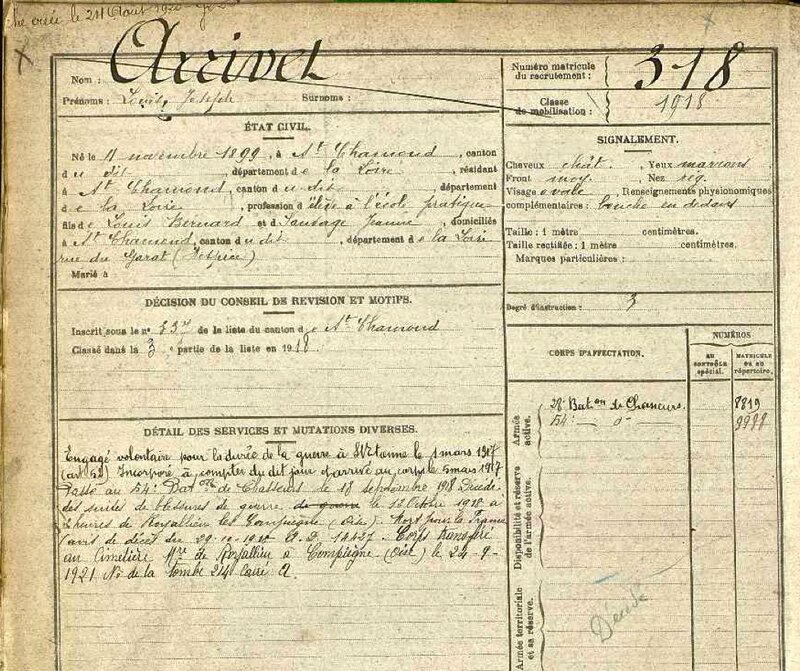 créée le 24 Août 1920
Nom : Arrivet
Prénoms : Louis, Joseph Surnoms :
Numéro matricule du recrutement : 318
Classe de mobilisation : 1918
ÉTAT CIVIL.
Né le 11 novembre 1899, à St Chamond, canton
du dit, département de la Loire, résidant
à St Chamond, canton du dit, département
de la Loire, profession d'élève à l'école pratique
fils de Louis Bernard et d Sausage Jeanne, domiciliés
à St Chamond, canton du dit, département de la Loire
rue du Garat (Hospice)
Marié à
SIGNALEMENT.
Cheveux chât. Yeux marrons
Front moy. Nez rég.
Visage ovale, Renseignements physionomiques
complémentaires : bouche en dedans
Taille : 1 mètre centimètres.
Taille rectifiée : 1 mètre centimètres.
Marques particulières :
Degré d'instruction : 3
DÉCISION DU CONSEIL DE REVISION ET MOTIFS.
Inscrit sous le n° 237 de la liste du canton de St Chamond
Classé dans la 3e partie de la liste en 1918
DÉTAIL DES SERVICES ET MUTATIONS DIVERSES.
Engagé volontaire pour la durée de la guerre à St Etienne le 1 mars 1917
(art 52) Incorporé à compter du dit jour et arrivé au corps le 5 mars 1917
Passé au 54e Baton de Chasseurs le 18 septembre 1918 Décédé
des suites de blessures de guerre de guerre le 12 Octbre 1918 à
heures de Royallieu les Compiègne (Oise). Mort pour la France
(avis de décès du 29-10-1918 A.D. 14427. Corps transféré
au Cimetière Mre de Royallieu à Compiègne (Oise) le 24-9-
1921 No de la tombe 214 Carré A.
CORPS D'AFFECTATION.
NUMÉROS
AU CONTRÔLE spécial.
MATRICULE OU AU répertoire.
Armée active.
28e Baton de Chasseurs. 8819
54e — d° — 9998
Disponibilité et réserve de l'armée active.
Armée territoriale et sa réserve.
Décédé